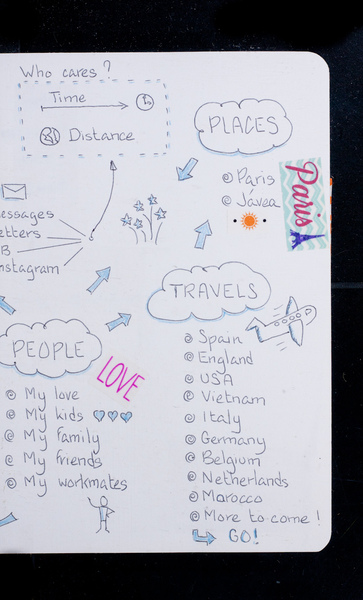 Who cares?
Time
Distance
PLACES
Paris
Jávea
Paris
essages
etters
B
nstagram
TRAVELS
Spain
England
USA
Vietnam
Italy
Germany
Belgium
Netherlands
Marocco
More to come!
GO!
PEOPLE
LOVE
My love
My kids
My family
My friends
My workmates